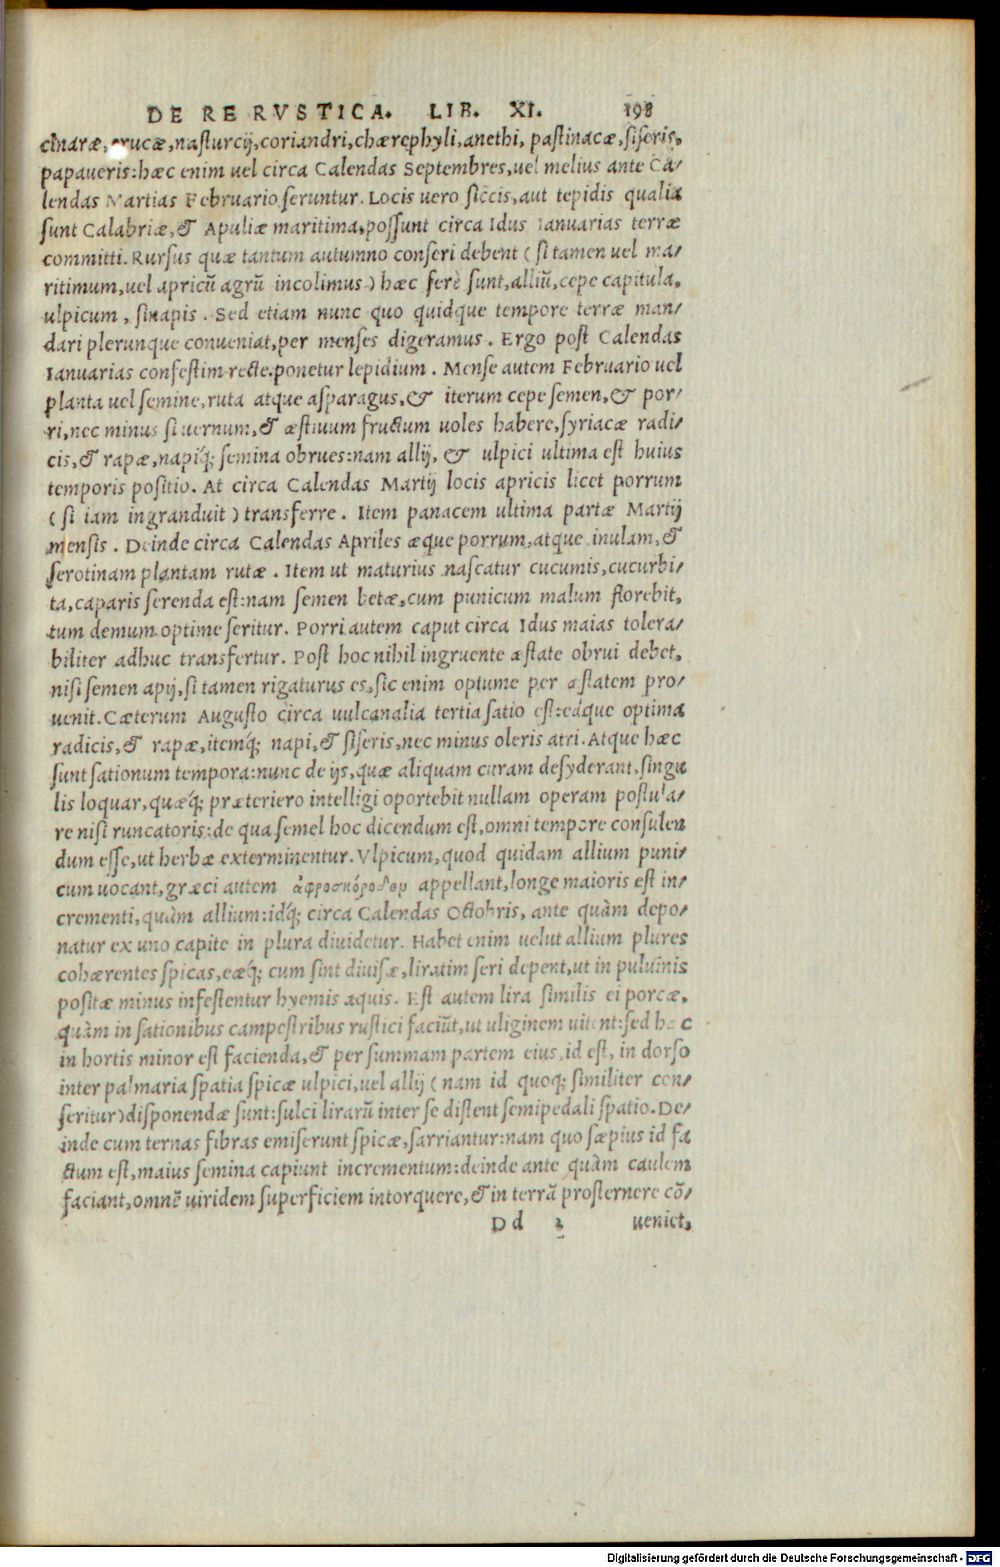 DE RE RVSTICA. LIB. XI. 198
cinaræ, erucæ, nasturcij, coriandri, chærephyli, anethi, pastinacæ, siseris,
papaueris: hæc enim uel circa Calendas Septembres, uel melius ante Ca/
lendas Martias Februario seruntur. Locis uero siccis, aut tepidis qualia
sunt Calabriæ, & Apuliæ maritima, possunt circa Idus Ianuarias terræ
committi. Rursus quæ tantum autumno conseri debent (si tamen uel ma/
ritimum, uel apricū agrū incolimus) hæc ferè sunt, alliū, cepe capitula,
ulpicum, sinapis. Sed etiam nunc quo quidque tempore terræ man/
dari plerunque conueniat, per menses digeramus. Ergo post Calendas
Ianuarias confestim recte ponetur lepidium. Mense autem Februario uel
planta uel semine, ruta atque asparagus, & iterum cepe semen, & por/
ri, nec minus si uernum, & æstiuum fructum uoles habere, syriacæ radi/
cis, & rapæ, napiq́; semina obrues: nam allij, & ulpici ultima est huius
temporis positio. At circa Calendas Martij locis apricis licet porrum
(si iam ingranduit) transferre. Item panacem ultima partæ Martij
mensis. Deinde circa Calendas Apriles æque porrum, atque inulam, &
serotinam plantam rutæ. Item ut maturius nascatur cucumis, cucurbi/
ta, caparis serenda est: nam semen betæ, cum punicum malum florebit,
tum demum optime seritur. Porri autem caput circa Idus maias tolera/
biliter adhuc transfertur. Post hoc nihil ingruente æstate obrui debet,
nisi semen apij, si tamen rigaturus es, sic enim optume per æstatem pro/
uenit. Cæterum Augusto circa uulcanalia tertia satio est: eaque optima
radicis, & rapæ, itemq́; napi, & siseris, nec minus oleris atri. Atque hæc
sunt sationum tempora: nunc de ijs, quæ aliquam curam desyderant, singu
lis loquar, quæq́; præteriero intelligi oportebit nullam operam postula/
re nisi runcatoris: de qua semel hoc dicendum est, omni tempore consulen
dum esse, ut herbæ exterminentur. Vlpicum, quod quidam allium puni/
cum uocant, græci autem ἀφροσκόροδομ appellant, longe maioris est in/
crementi, quàm allium: idq́; circa Calendas Octobris, ante quàm depo/
natur ex uno capite in plura diuidetur. Habet enim uelut allium plures
cohærentes spicas, eæq́; cum sint diuisæ, liratim seri depent, ut in puluinis
positæ minus infestentur hyemis aquis. Est autem lira similis ei porcæ,
quàm in sationibus campestribus rustici faciūt, ut uliginem uitent: sed hæc
in hortis minor est facienda, & per summam partem eius, id est, in dorso
inter palmaria spatia spicæ ulpici, uel allij (nam id quoq; similiter con/
seritur) disponendæ sunt: sulci lirarū inter se distent semipedali spatio. De/
inde cum ternas fibras emiserunt spicæ, sarriantur: nam quo sæpius id fa
ctum est, maius semina capiunt incrementum: deinde ante quàm caulem
faciant, omnē uiridem superficiem intorquere, & in terrā prosternere cō/
Dd 2 ueniet,
Digitalisierung gefördert durch die Deutsche Forschungsgemeinschaft - DFG